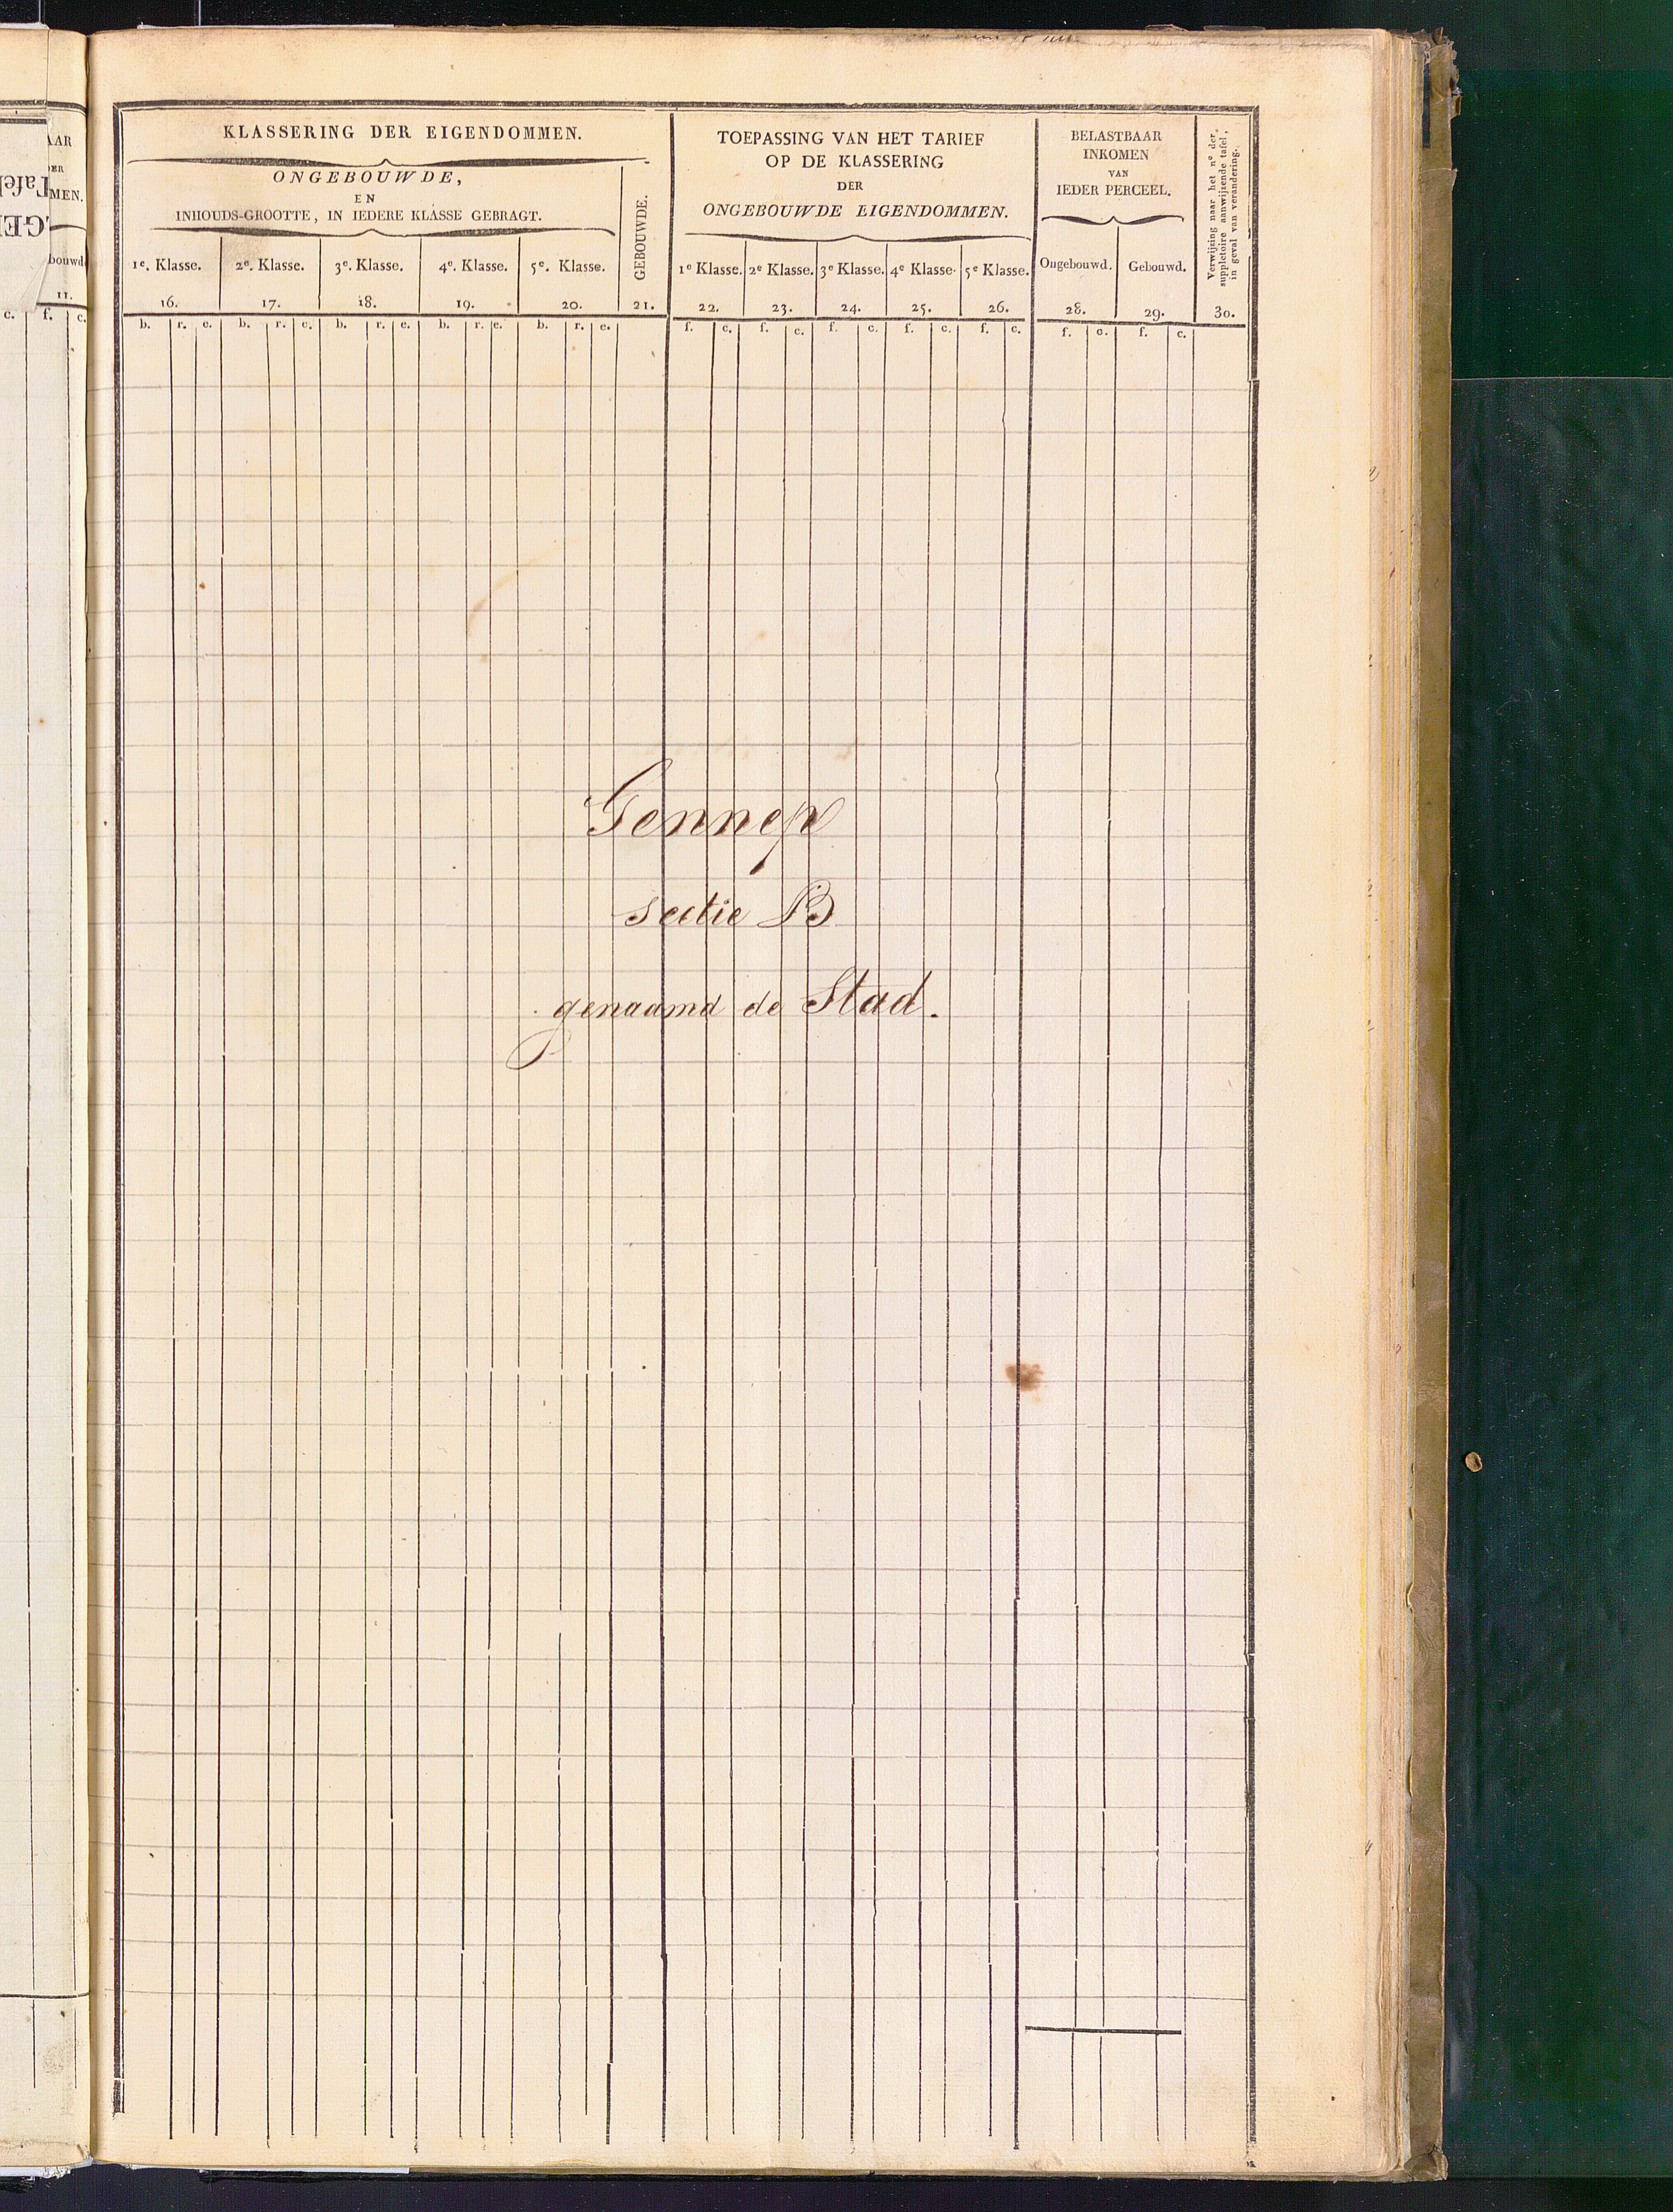 AAR
MEN.
bouwd
11.
c. f. c.
KLASSERING DER EIGENDOMMEN.
ONGEBOUWDE,
EN
INHOUDS-GROOTTE, IN IEDERE KLASSE GEBRAGT.
GEBOUWDE.
1e. Klasse. 2e. Klasse. 3e. Klasse. 4e. Klasse. 5e. Klasse.
16. 17. 18. 19. 20. 21.
b. r. e. b. r. e. b. r. e. b. r. e. b. r. e.
TOEPASSING VAN HET TARIEF
OP DE KLASSERING
DER
ONGEBOUWDE EIGENDOMMEN.
1e Klasse. 2e Klasse. 3e Klasse. 4e Klasse. 5e Klasse.
22. 23. 24. 25. 26.
f. c. f. c. f. c. f. c. f. c.
BELASTBAAR
INKOMEN
VAN
IEDER PERCEEL.
Ongebouwd. Gebouwd.
28. 29.
f. c. f. c.
Verwijzing naar het no der
suppletoire aanwijzende tafel,
in geval van verandering.
30.
Gennep
sectie B
genaamd de Stad.